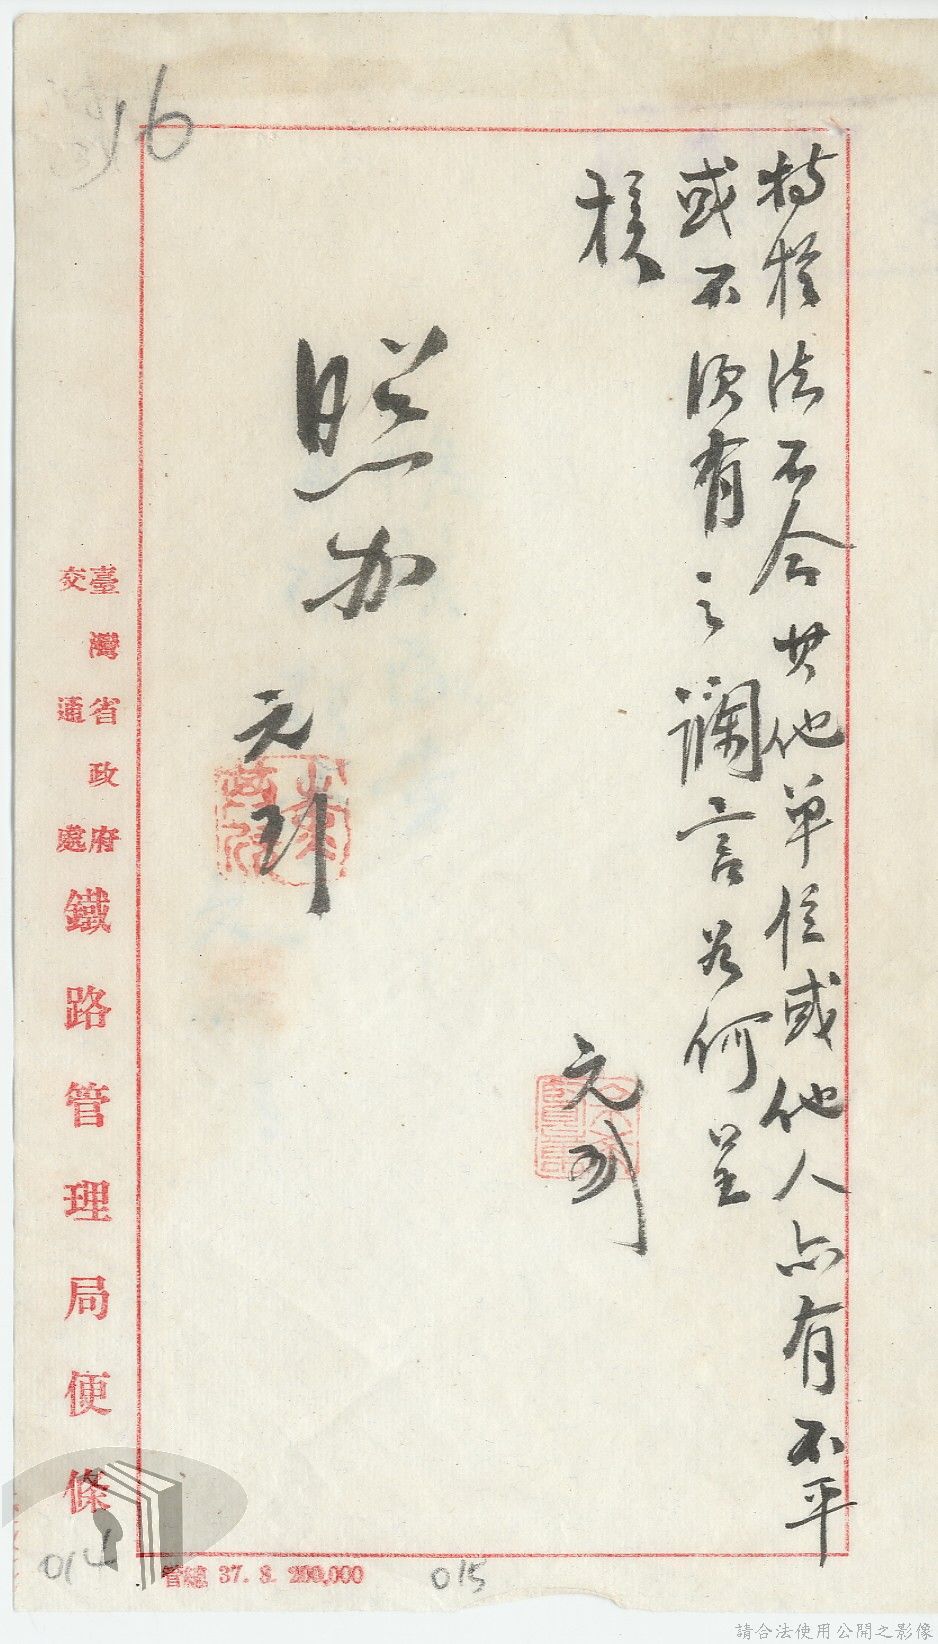 16
特於法不合其他單位或他人亦有不平
或不須有之讕言若何呈
核
元
照办
元
臺灣省政府
交通處
鐵路管理局便條
管總 37. 8. 200,000
014
015
請合法使用公開之影像